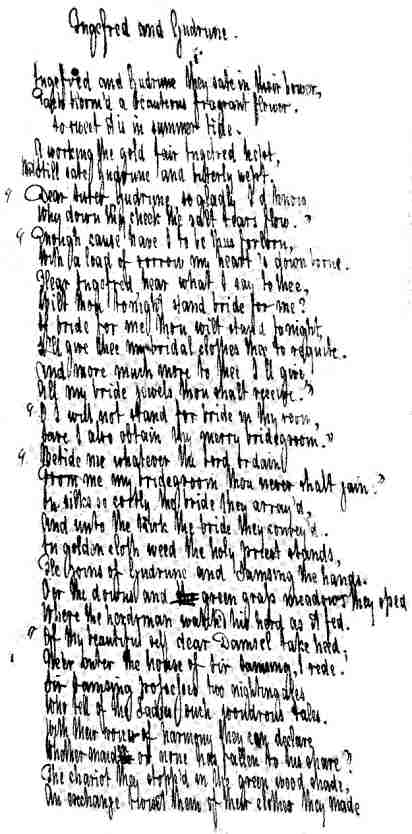 Ingefred and Gudrune.
Ingefred and Gudrune they sate in their bower,
Each bloom'd a beauteous fragrant flower.
So sweet it is in summer tide.
A working the gold fair Ingefred kept,
still sate Gudrune and bitterly wept.
"Dear sister Gudrune so gladly I'd know
Why down thy cheek the salt tears flow."
"Enough cause have I to be thus forlorn,
With a load of sorrow my heart is down borne.
Hear Ingefred hear what I say to thee,
Wilt thou tonight stand bride for me?
If bride for me thou wilt stand tonight,
I'll give thee my bridal clothes thee to requite.
And more much more to thee I'll give
All my bride jewels thou shalt receive."
"O I will not stand for bride in thy room,
Save I also obtain thy merry bridegroom."
"Betide me whatever the Lord ordain
From me my bridegroom thou never shalt gain."
In silks so costly the bride they array'd,
And unto the kirk the bride they convey'd.
In golden cloth weed the holy priest stands,
He joins of Gudrune and Samsing the hands.
O'er the downs and green grass meadows they sped
Where the herdsman watch'd his herd as it fed.
"Of thy beauteous self dear Damsel take heed,
Ne'er enter the house of Sir Samsing, I rede.
Sir Samsing possesses two nightingales
Who tell of the Ladies such wondrous tales.
With their voices of harmony they can declare
Whether maid or none has fallen to his share?
The chariot they stopp'd in the green wood shade,
An exchange 'twixt them of their clothes they made